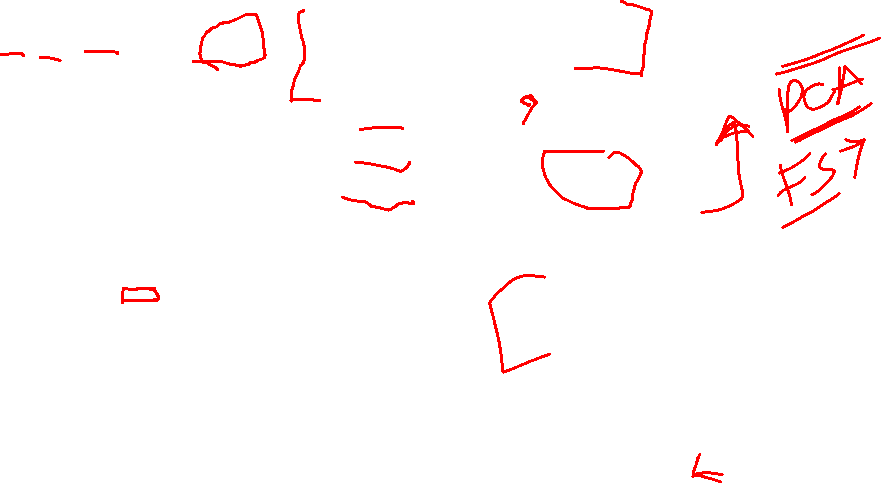 PCA
FS